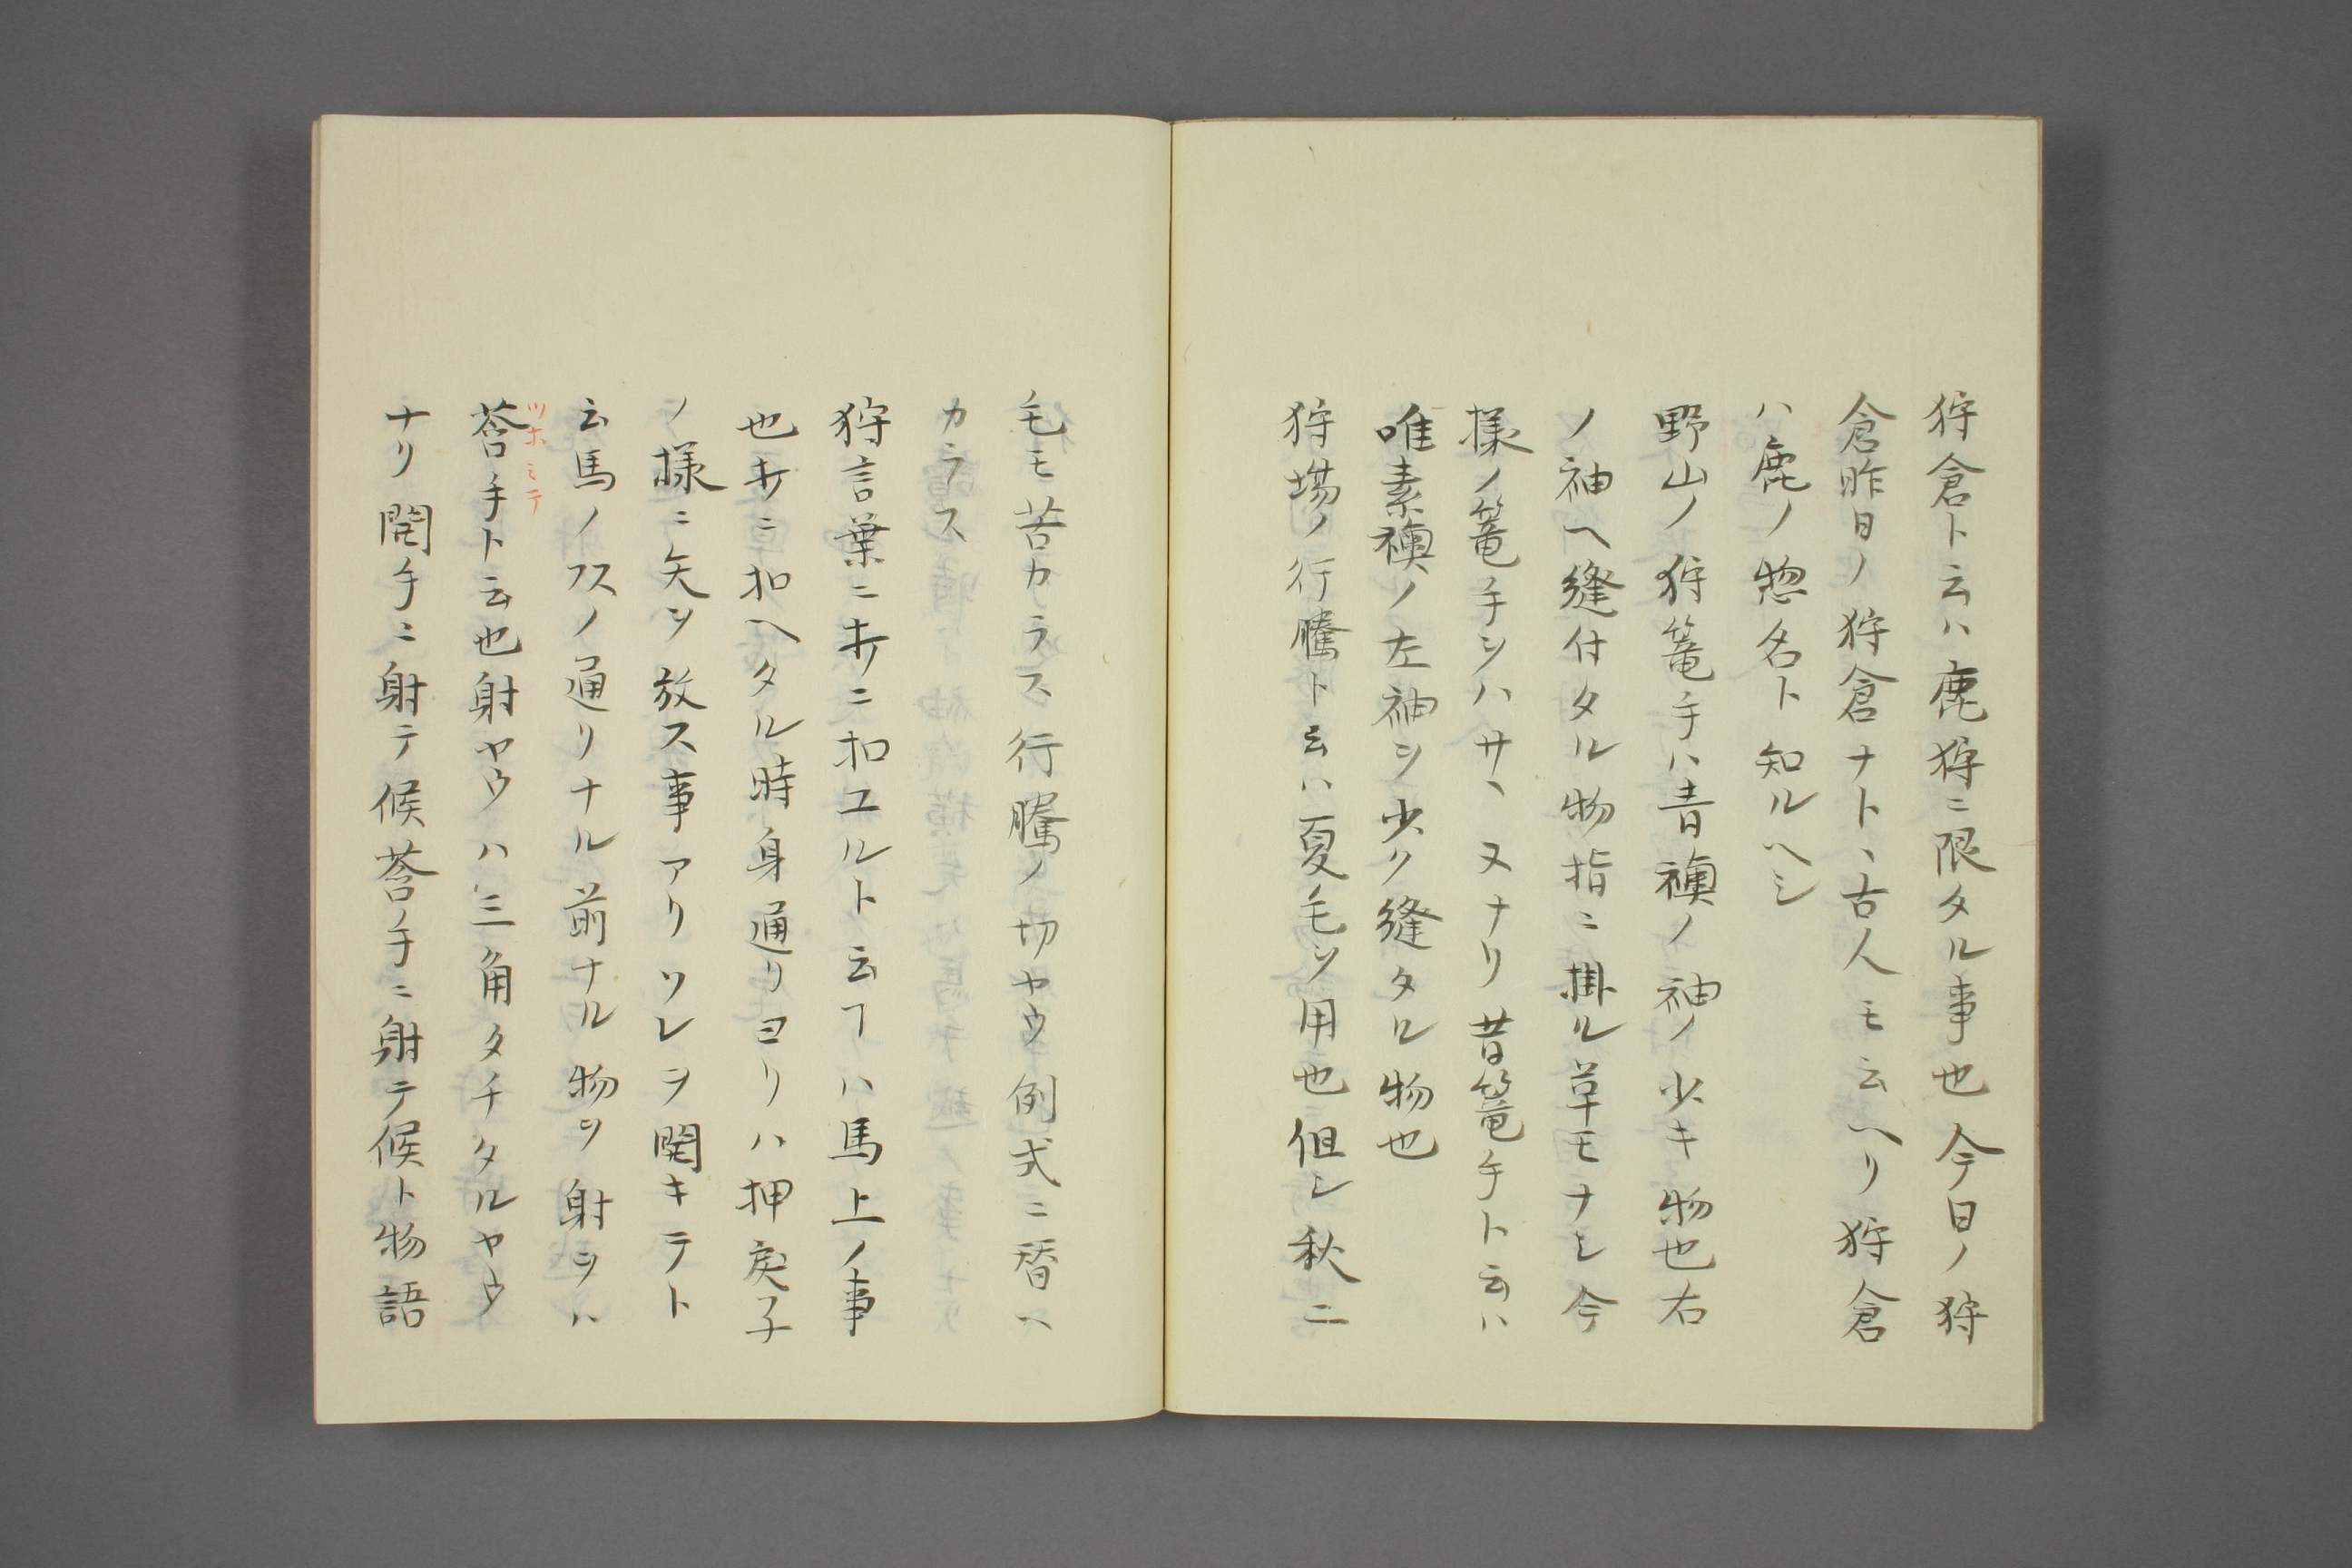 狩倉ト云ハ鹿狩ニ限タル事也今日ノ狩
倉昨日ノ狩倉ナト丶古人モ云ヘリ狩倉
ハ鹿ノ惣名ト知ルヘシ
野山ノ狩篭手ハ青襖ノ袖ノ少キ物也右
ノ袖ヘ縫付タル物指ニ掛ル草モナシ今
様ノ篭手ンハサヽヌナリ昔篭手ト云ハ
唯素襖ノ左袖ヲ少ク縫タル物也
狩場ノ行騰ト云ハ夏毛ヲ用也但シ秋ニ
毛モ苦カラス行騰ノ切ヤウ例式ニ替ヘ
カラス
狩言葉ニ木ニ扣ユルト云フハ馬上ノ事
也木ニ扣ヘタル時身通リヨリハ押戻子
ノ様ニ矢ヲ放ス事アリソレヲ開キテト
云馬ノフスノ通リナル前ナル物ヲ射ヲハ
莟手ト云也射ヤウハ三角タチタルヤウ
ツホミテ
ナリ開手ニ射テ候莟手ニ射テ候ト物語